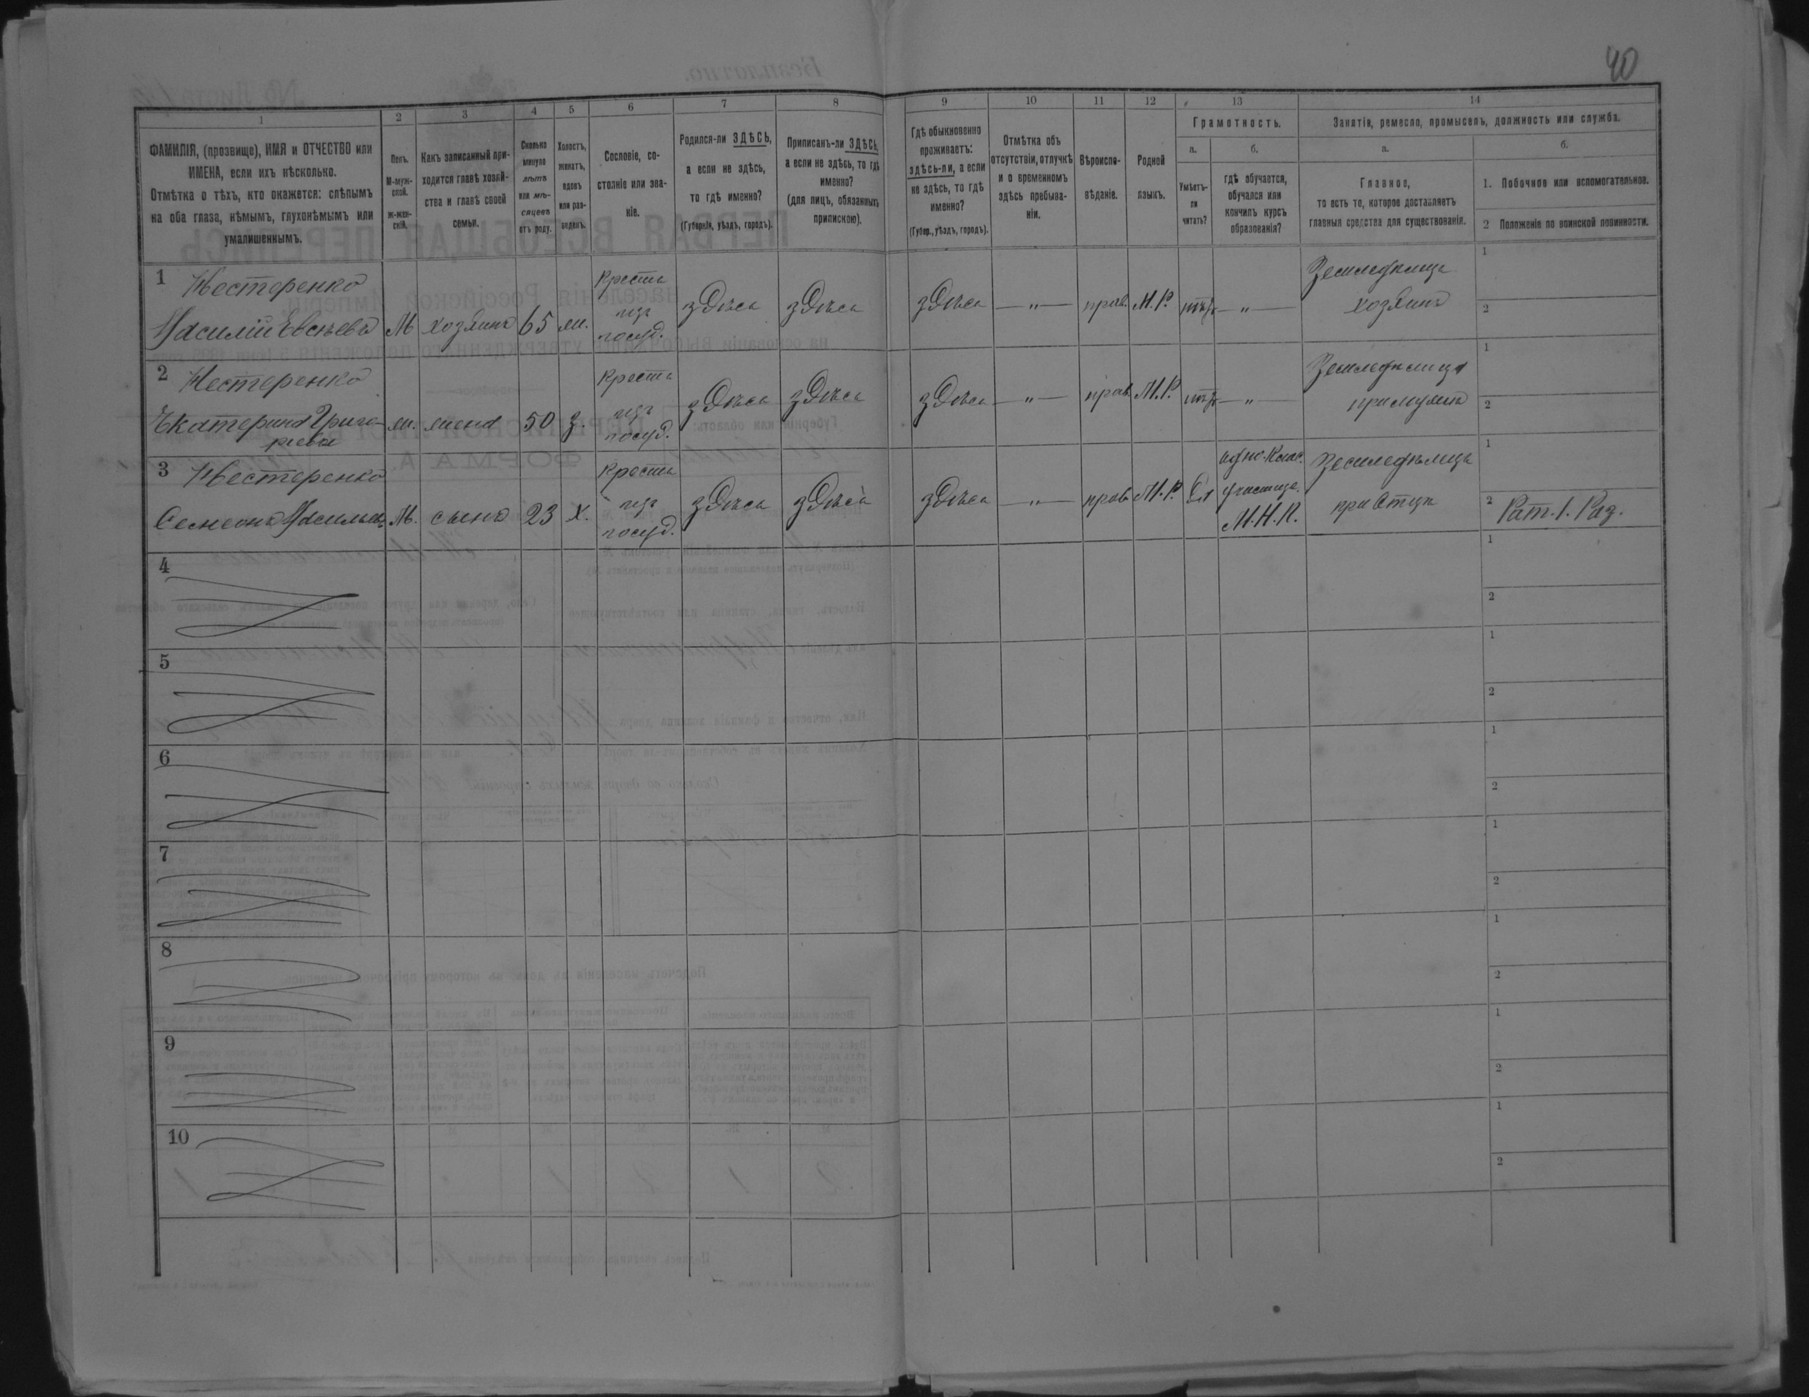 40
1 2 3 4 5 6 7 8 9 10 11 12 13 14
ФАМИЛІЯ, (прозвище), ИМЯ и ОТЧЕСТВО или
ИМЕНА, если ихъ нѣсколько.
Отмѣтка о тѣхъ, кто окажется: слѣпымъ
на оба глаза, нѣмымъ, глухонѣмымъ или
умалишеннымъ.
Полъ.
М-муж-
ской.
Ж-жен-
скій.
Какъ записанный при-
ходится главѣ хозяй-
ства и главѣ своей
семьи.
Сколько
минуло
лѣтъ
или мѣ-
сяцевъ
отъ роду.
Холостъ,
женатъ,
вдовъ
или раз-
веденъ.
Сословіе, со-
стояніе или зва-
ніе.
Родился-ли ЗДѢСЬ,
а если не здѣсь,
то гдѣ именно?
(Губернія, уѣздъ, городъ).
Приписанъ-ли ЗДѢСЬ,
а если не здѣсь, то гдѣ
именно?
(для лицъ, обязанныхъ
припискою).
Гдѣ обыкновенно
проживаетъ:
здѣсь-ли, а если
не здѣсь, то гдѣ
именно?
(Губер., уѣздъ, городъ).
Отмѣтка объ
отсутствіи, отлучкѣ
и о временномъ
здѣсь пребыва-
ніи.
Вѣроиспо-
вѣданіе.
Родной
языкъ.
Грамотность.
а.
Умѣетъ-
ли
читать?
б.
гдѣ обучается,
обучался или
кончилъ курсъ
образованія?
Занятія, ремесло, промыселъ, должность или служба.
а.
Главное,
то есть то, которое доставляетъ
главныя средства для существованія.
б.
1. Побочное или вспомогательное.
2 Положеніе по воинской повинности.
1 Нестеренко
Василій Евсѣевъ М хозяинъ 65 ж. Крестья изъ госуд. здѣсь здѣсь здѣсь — " — прав. М.Р. нѣтъ — " — Земледѣлецъ хозяинъ 1 2
2 Нестеренко
Екатерина Григо-
рьева ж. жена 50 з. Крестья изъ госуд. здѣсь здѣсь здѣсь — " — прав. М.Р. нѣтъ — " — Земледѣлица при мужѣ 1 2
3 Нестеренко
Семеонъ Васильевъ М. сынъ 23 х. Крестья изъ госуд. здѣсь здѣсь здѣсь — " — прав. М.Р. Да одно-клас. училище. М.Н.П. Земледѣлецъ при отцѣ 1 2 Рат. 1. Раз.
4 1 2
5 1 2
6 1 2
7 1 2
8 1 2
9 1 2
10 1 2